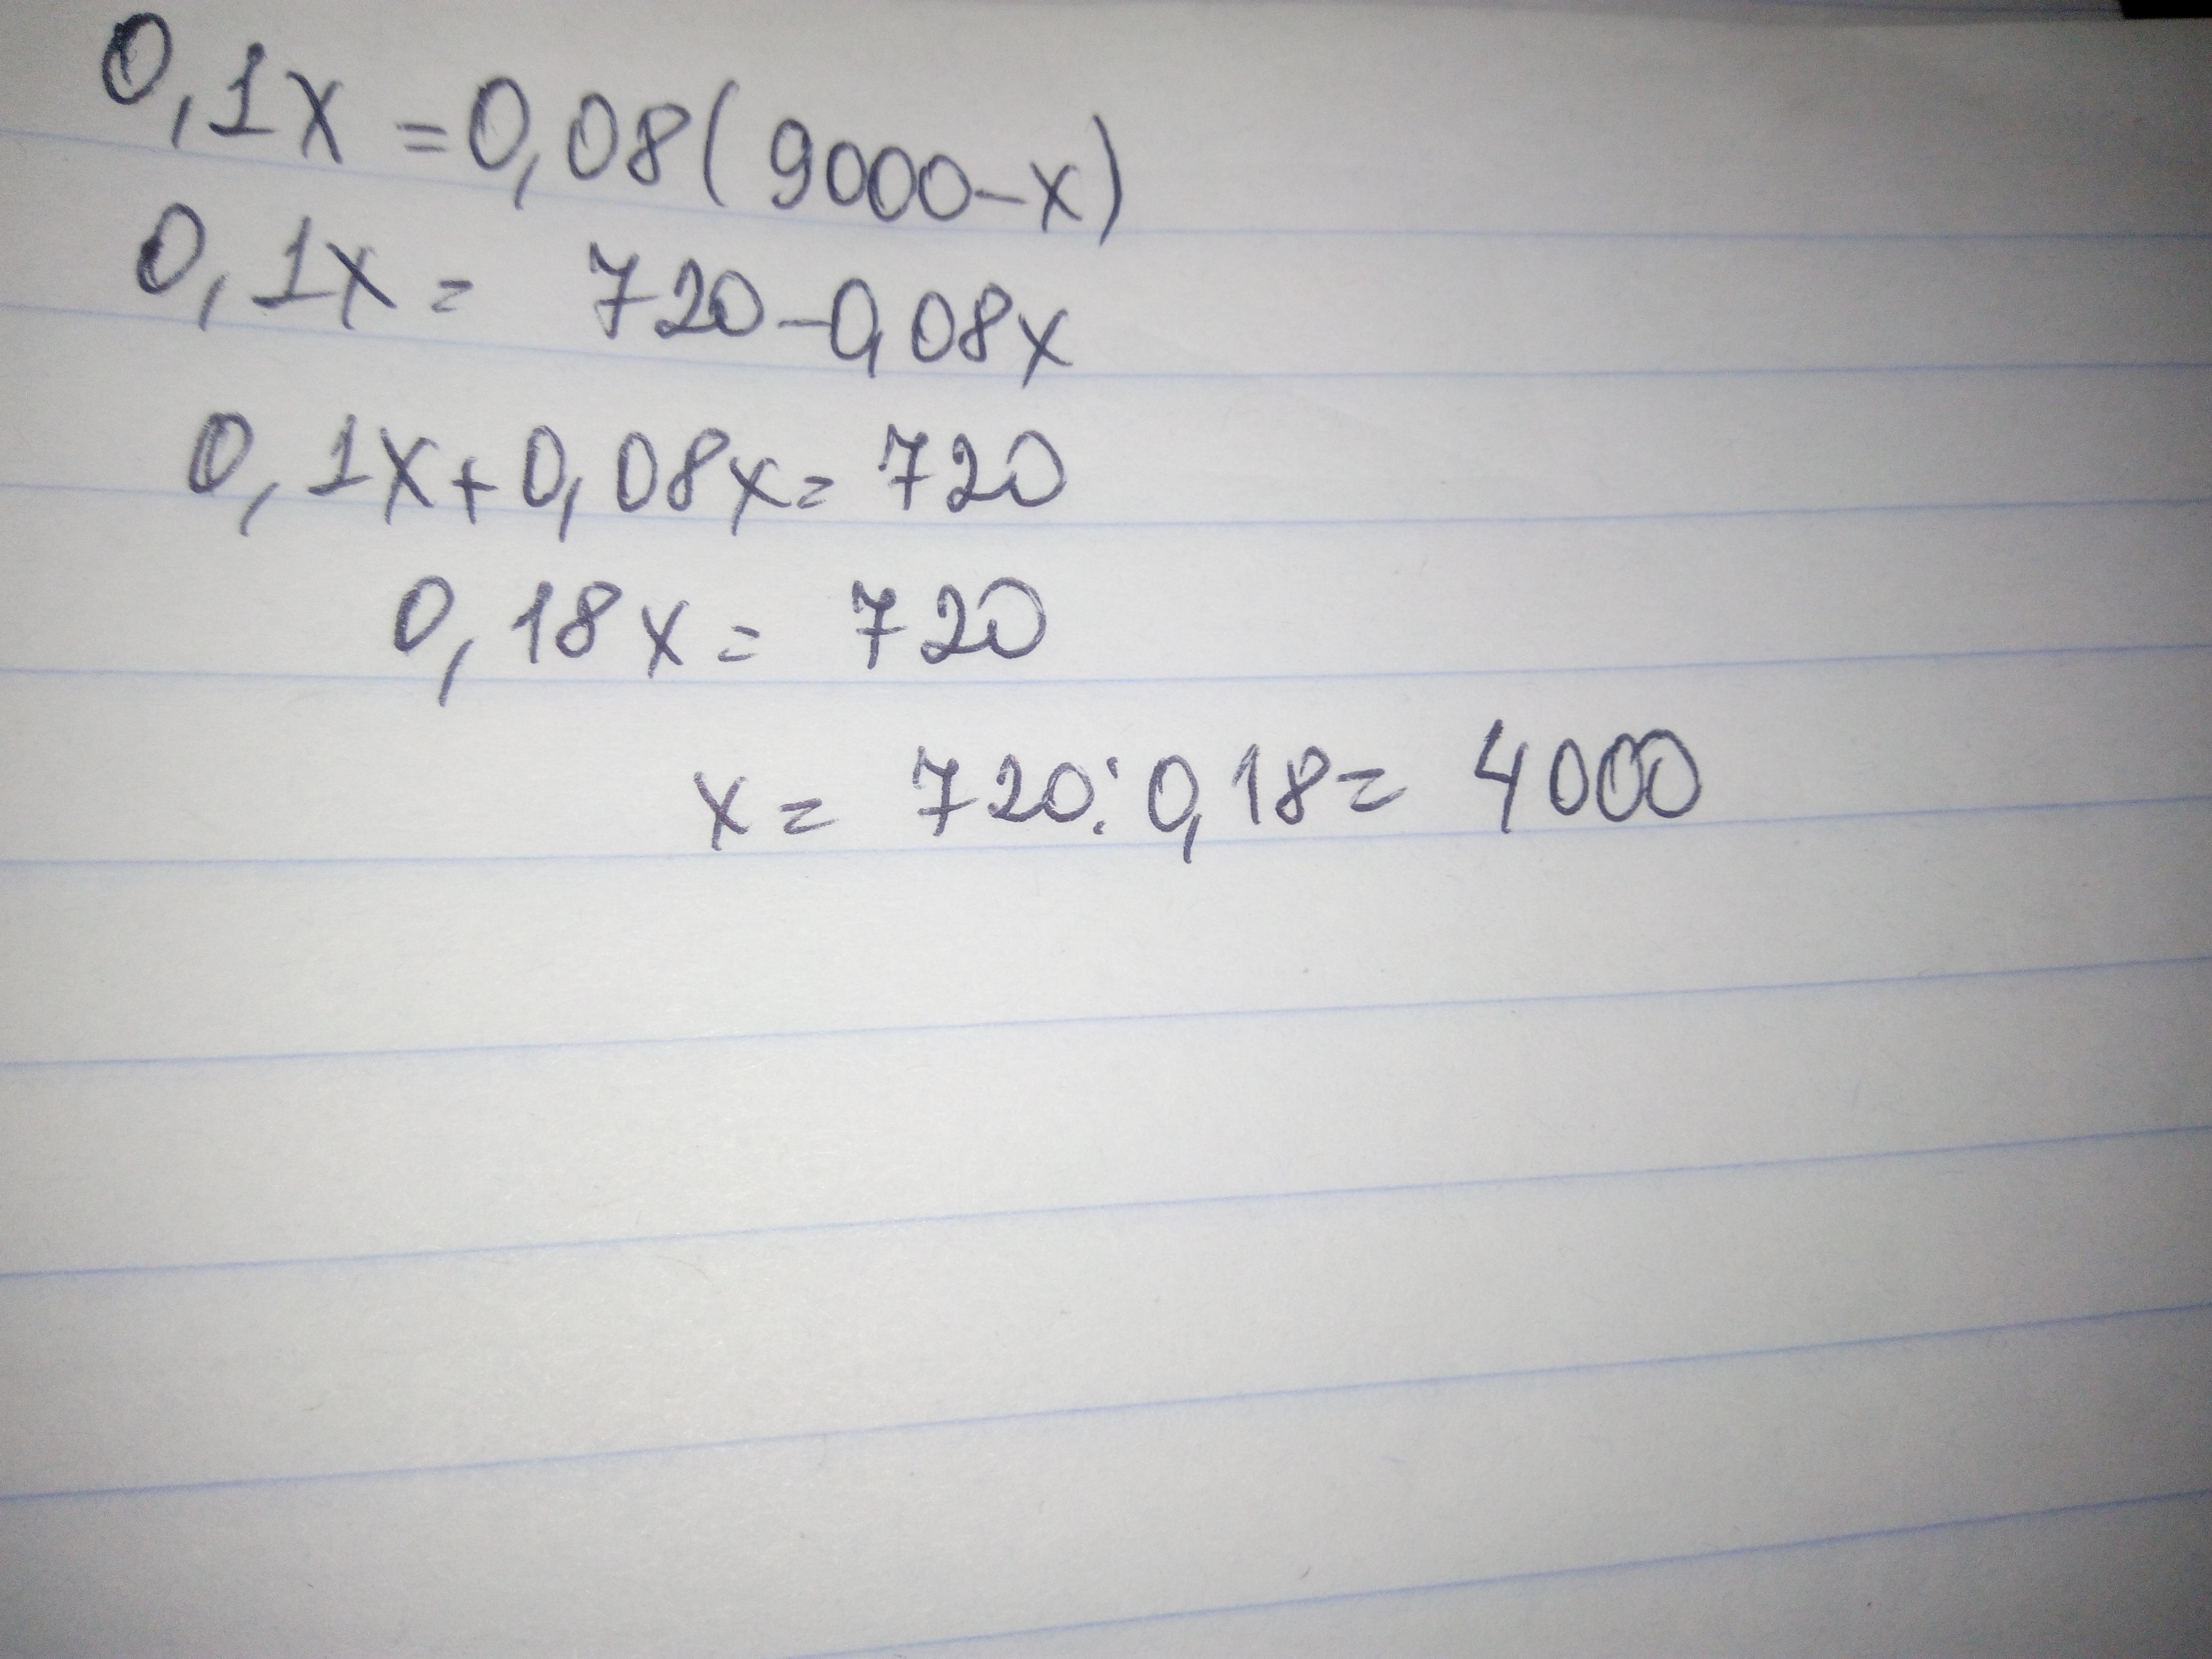 0,1x=0,08(9000-x)
0,1x= 720-0,08x
0,1x+0,08x=720
0,18x= 720
x= 720:0,18= 4000